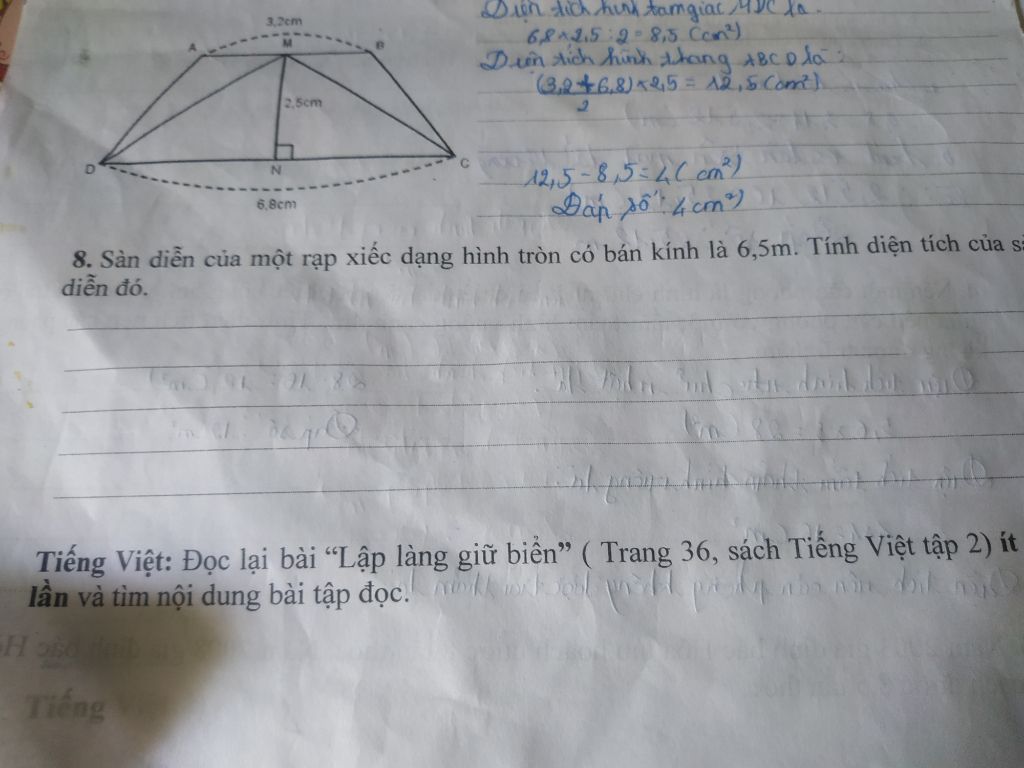 3,2cm
A
M
B
2,5cm
D
N
C
6,8cm
Diện tích hình tam giác MDC là:
6,8 × 2,5 : 2 = 8,5 (cm²)
Diện tích hình thang ABCD là:
(3,2 + 6,8) × 2,5 = 12,5 (cm²)
2
12,5 - 8,5 = 4 (cm²)
Đáp số: 4cm²)
8. Sàn diễn của một rạp xiếc dạng hình tròn có bán kính là 6,5m. Tính diện tích của
diễn đó.
Tiếng Việt: Đọc lại bài “Lập làng giữ biển” ( Trang 36, sách Tiếng Việt tập 2) ít
lần và tìm nội dung bài tập đọc.
Tiếng